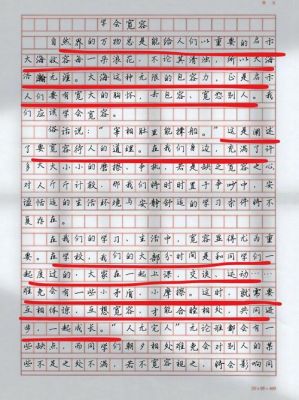 学会宽容
自然界的万物总是能给人们以重要的启示
大海收容每一朵浪花，不论其清浊，所以大海
浩瀚无涯。大海这种无限的包容力，正是启示
人们要有宽大的胸怀，去包容，宽恕别人。我
们应该学会宽容。
俗话说：“宰相肚里能撑船。”这是阐述
了要宽容待人的道理。在我们身边，充满了许
多大大小小的磨擦、争执，若是缺乏宽容之心，
对人斤斤计较，那我们将时时置于争吵中，安
谧恬适的生活环境与安静舒适的学习条件将不
复存在。
在我们的学习、生活中，宽容显得尤为重
要。在学校，我们的大部分时间是和同学们一
起度过的，大家在一起上课，交谈，运动……
难免会有一些小矛盾，小摩擦。这时，就需要
互相体谅，互想宽容，才能和睦相处，共同进
步，一起成长。“人无完人”无论谁都会有一
些缺点，而同学们朝夕相处难免会对别人的某
些不足之处不满，若不宽容视之，将会影响同